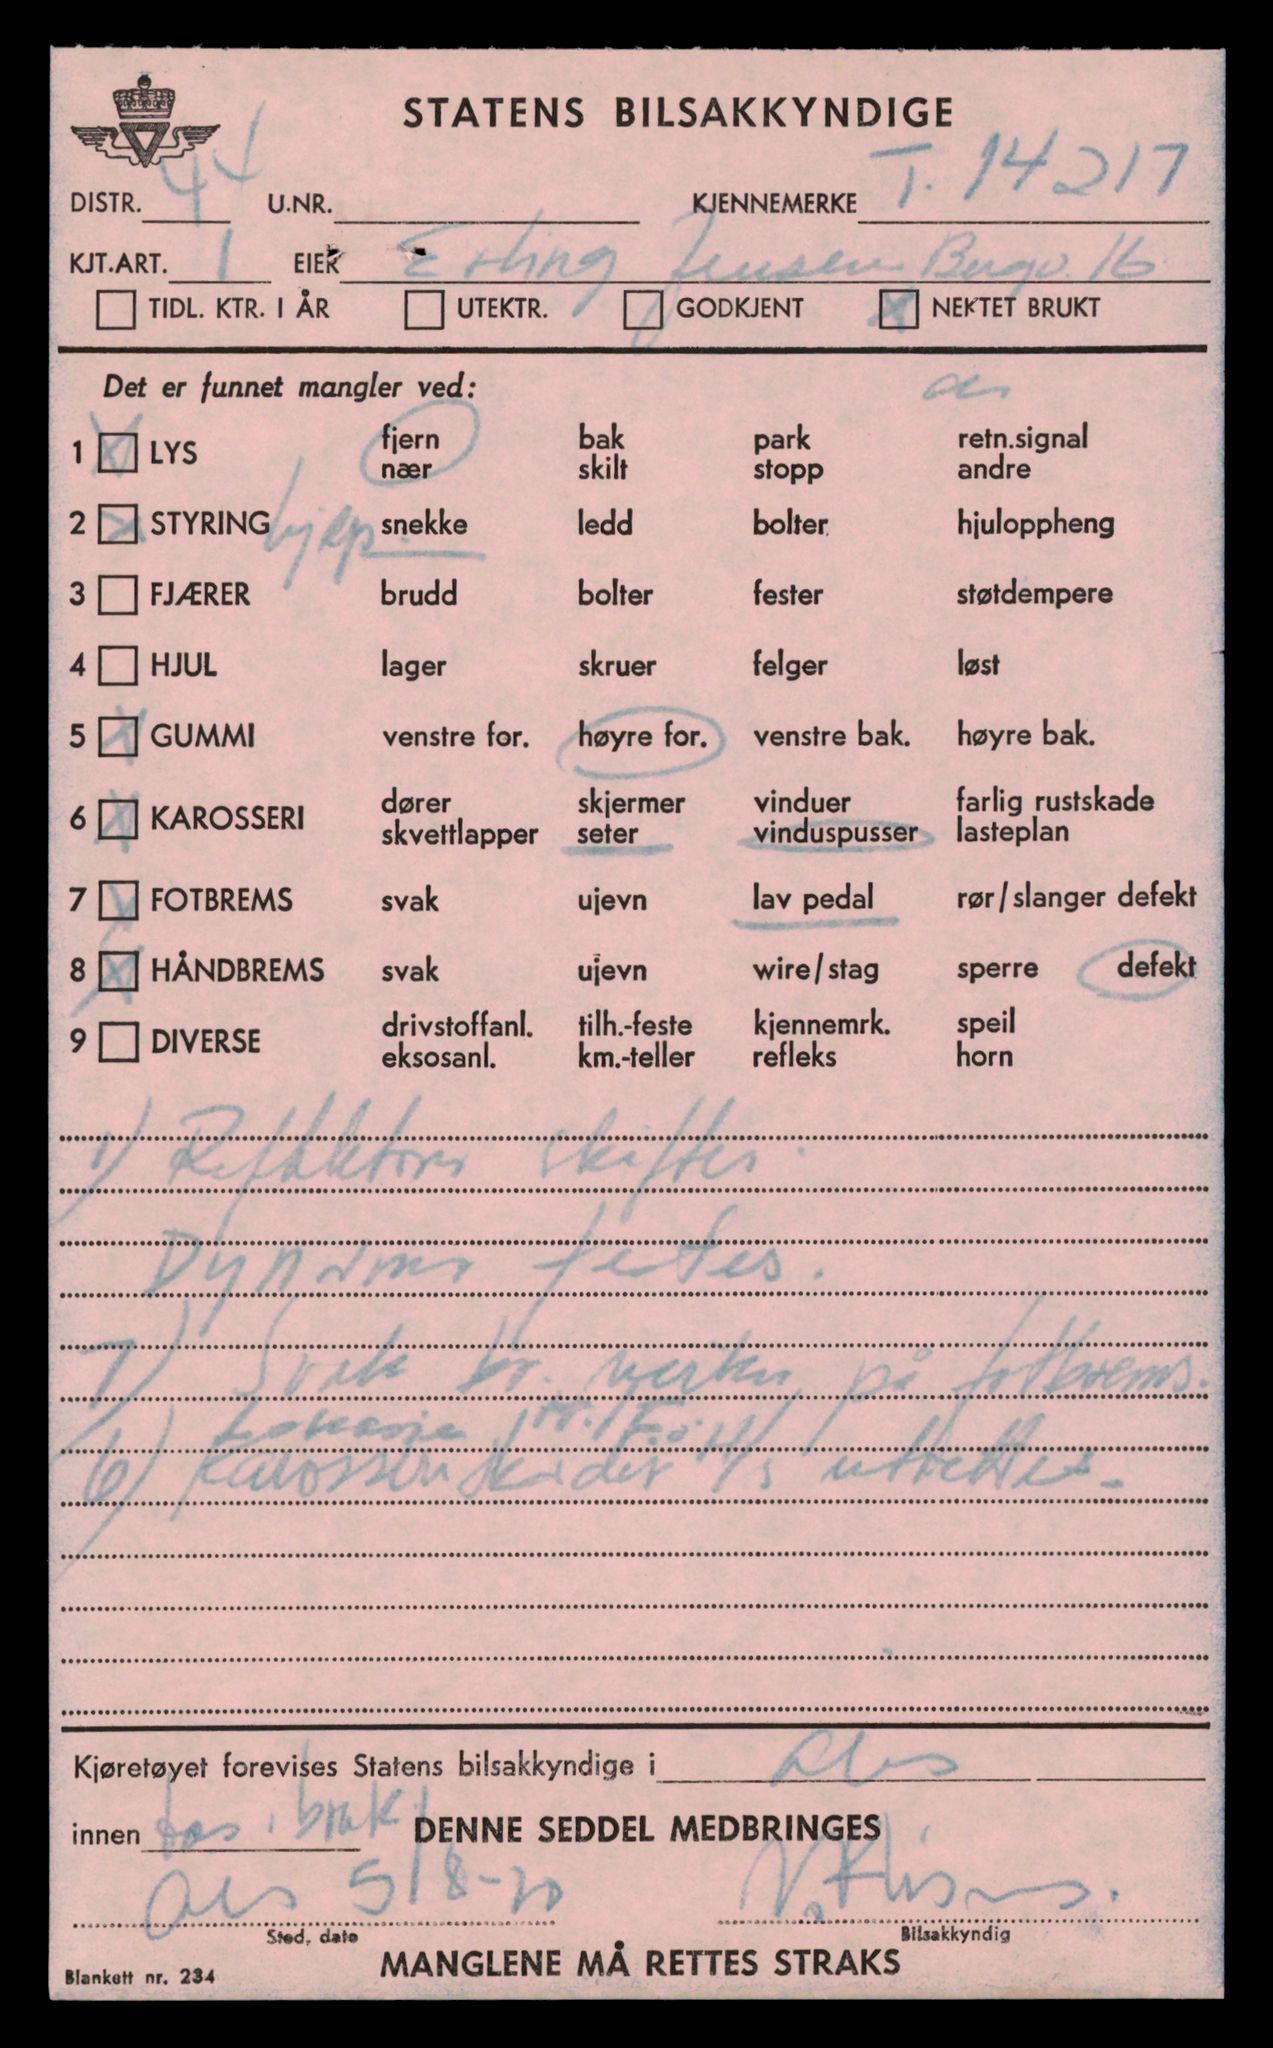 STATENS BILSAKKYNDIGE
DISTR. 44 U.NR. KJENNEMERKE T. 14217
KJT.ART. 1 EIER Erling Jensen 16
TIDL. KTR. I ÅR UTEKTR. GODKJENT X NEKTET BRUKT
Det er funnet mangler ved:
1 X LYS fjern bak park retn.signal
nær skilt stopp andre
2 X STYRING hjelp. snekke ledd bolter hjuloppheng
3 FJÆRER brudd bolter fester støtdempere
4 HJUL lager skruer felger løst
5 X GUMMI venstre for. høyre for. venstre bak. høyre bak.
6 X KAROSSERI dører skjermer vinduer farlig rustskade
skvettlapper seter vinduspusser lasteplan
7 X FOTBREMS svak ujevn lav pedal rør/slanger defekt
8 X HÅNDBREMS svak ujevn wire/stag sperre defekt
9 DIVERSE drivstoffanl. tilh.-feste kjennemrk. speil
eksosanl. km.-teller refleks horn
1) skiftes.
festes.
7) Svak br. på fotbrems.
6) Karosseriskader utrettes.
Kjøretøyet forevises Statens bilsakkyndige i Ols
innen DENNE SEDDEL MEDBRINGES
Ols 5/8-70
Sted, dato Bilsakkyndig
Blankett nr. 234 MANGLENE MÅ RETTES STRAKS